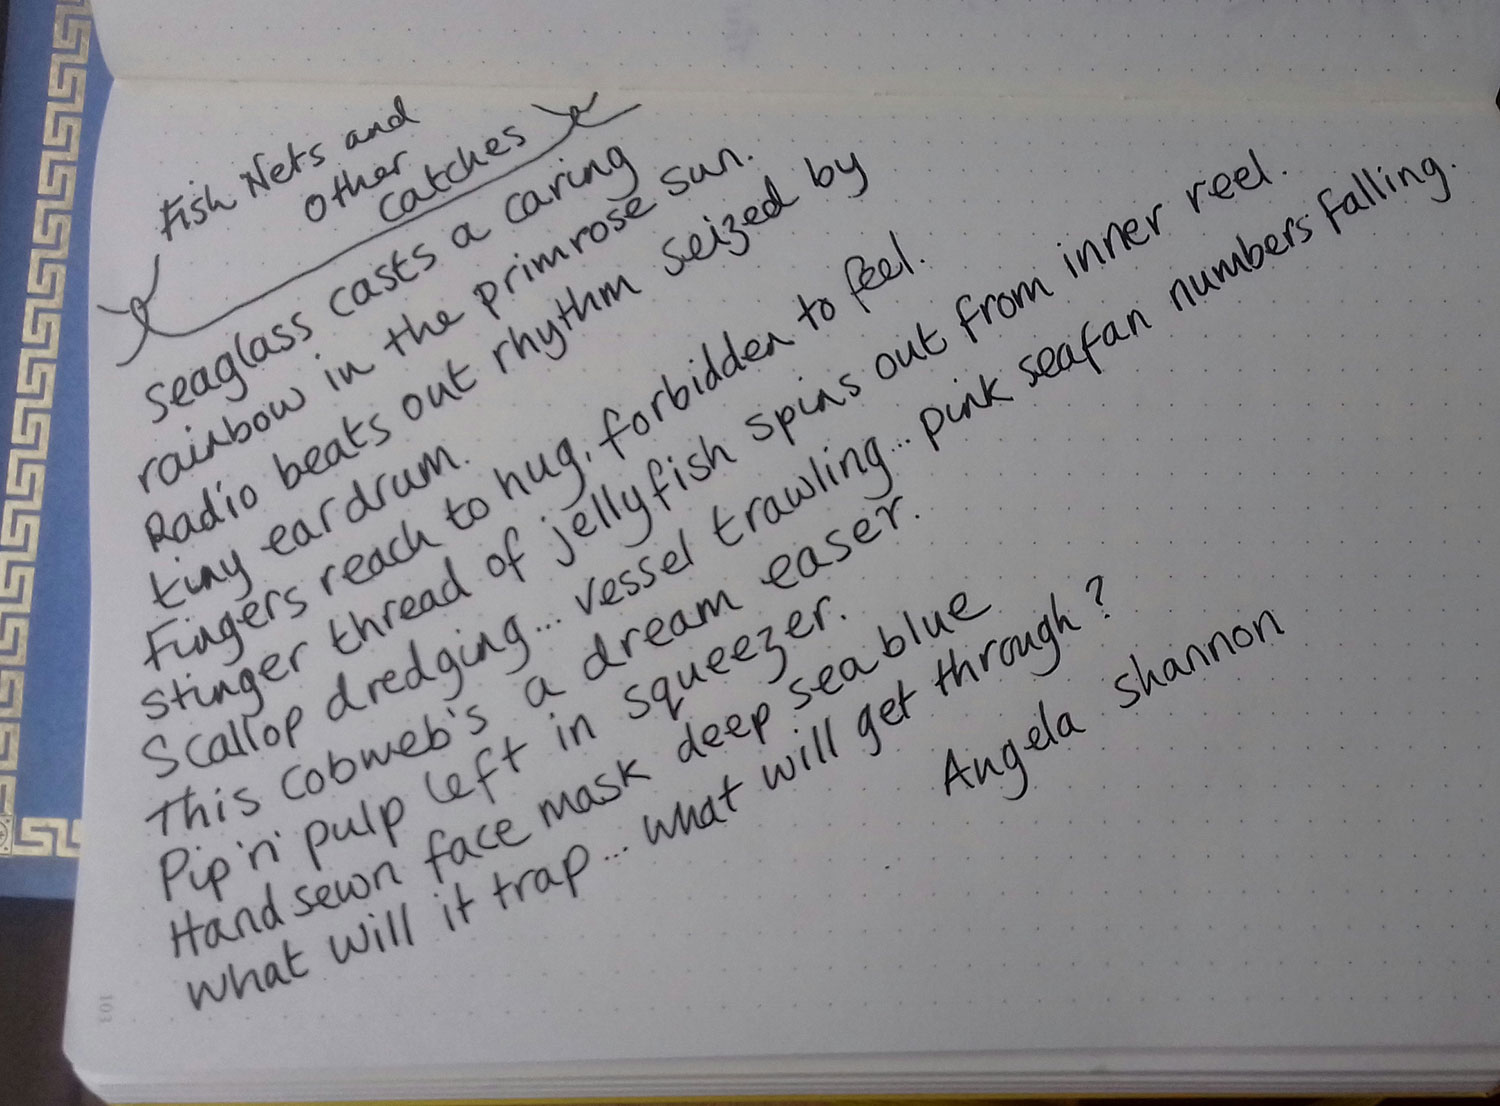 Fish Nets and
Other
catches
Seaglass casts a caring
rainbow in the primrose sun.
Radio beats out rhythm seized by
tiny eardrum.
Fingers reach to hug, forbidden to feel.
Stinger thread of jellyfish spins out from inner reel.
Scallop dredging... vessel trawling... pink seafan numbers falling.
This cobweb's a dream easer.
Pip 'n' pulp left in squeezer.
Hand sewn face mask deep sea blue
What will it trap... what will get through?
Angela Shannon
103